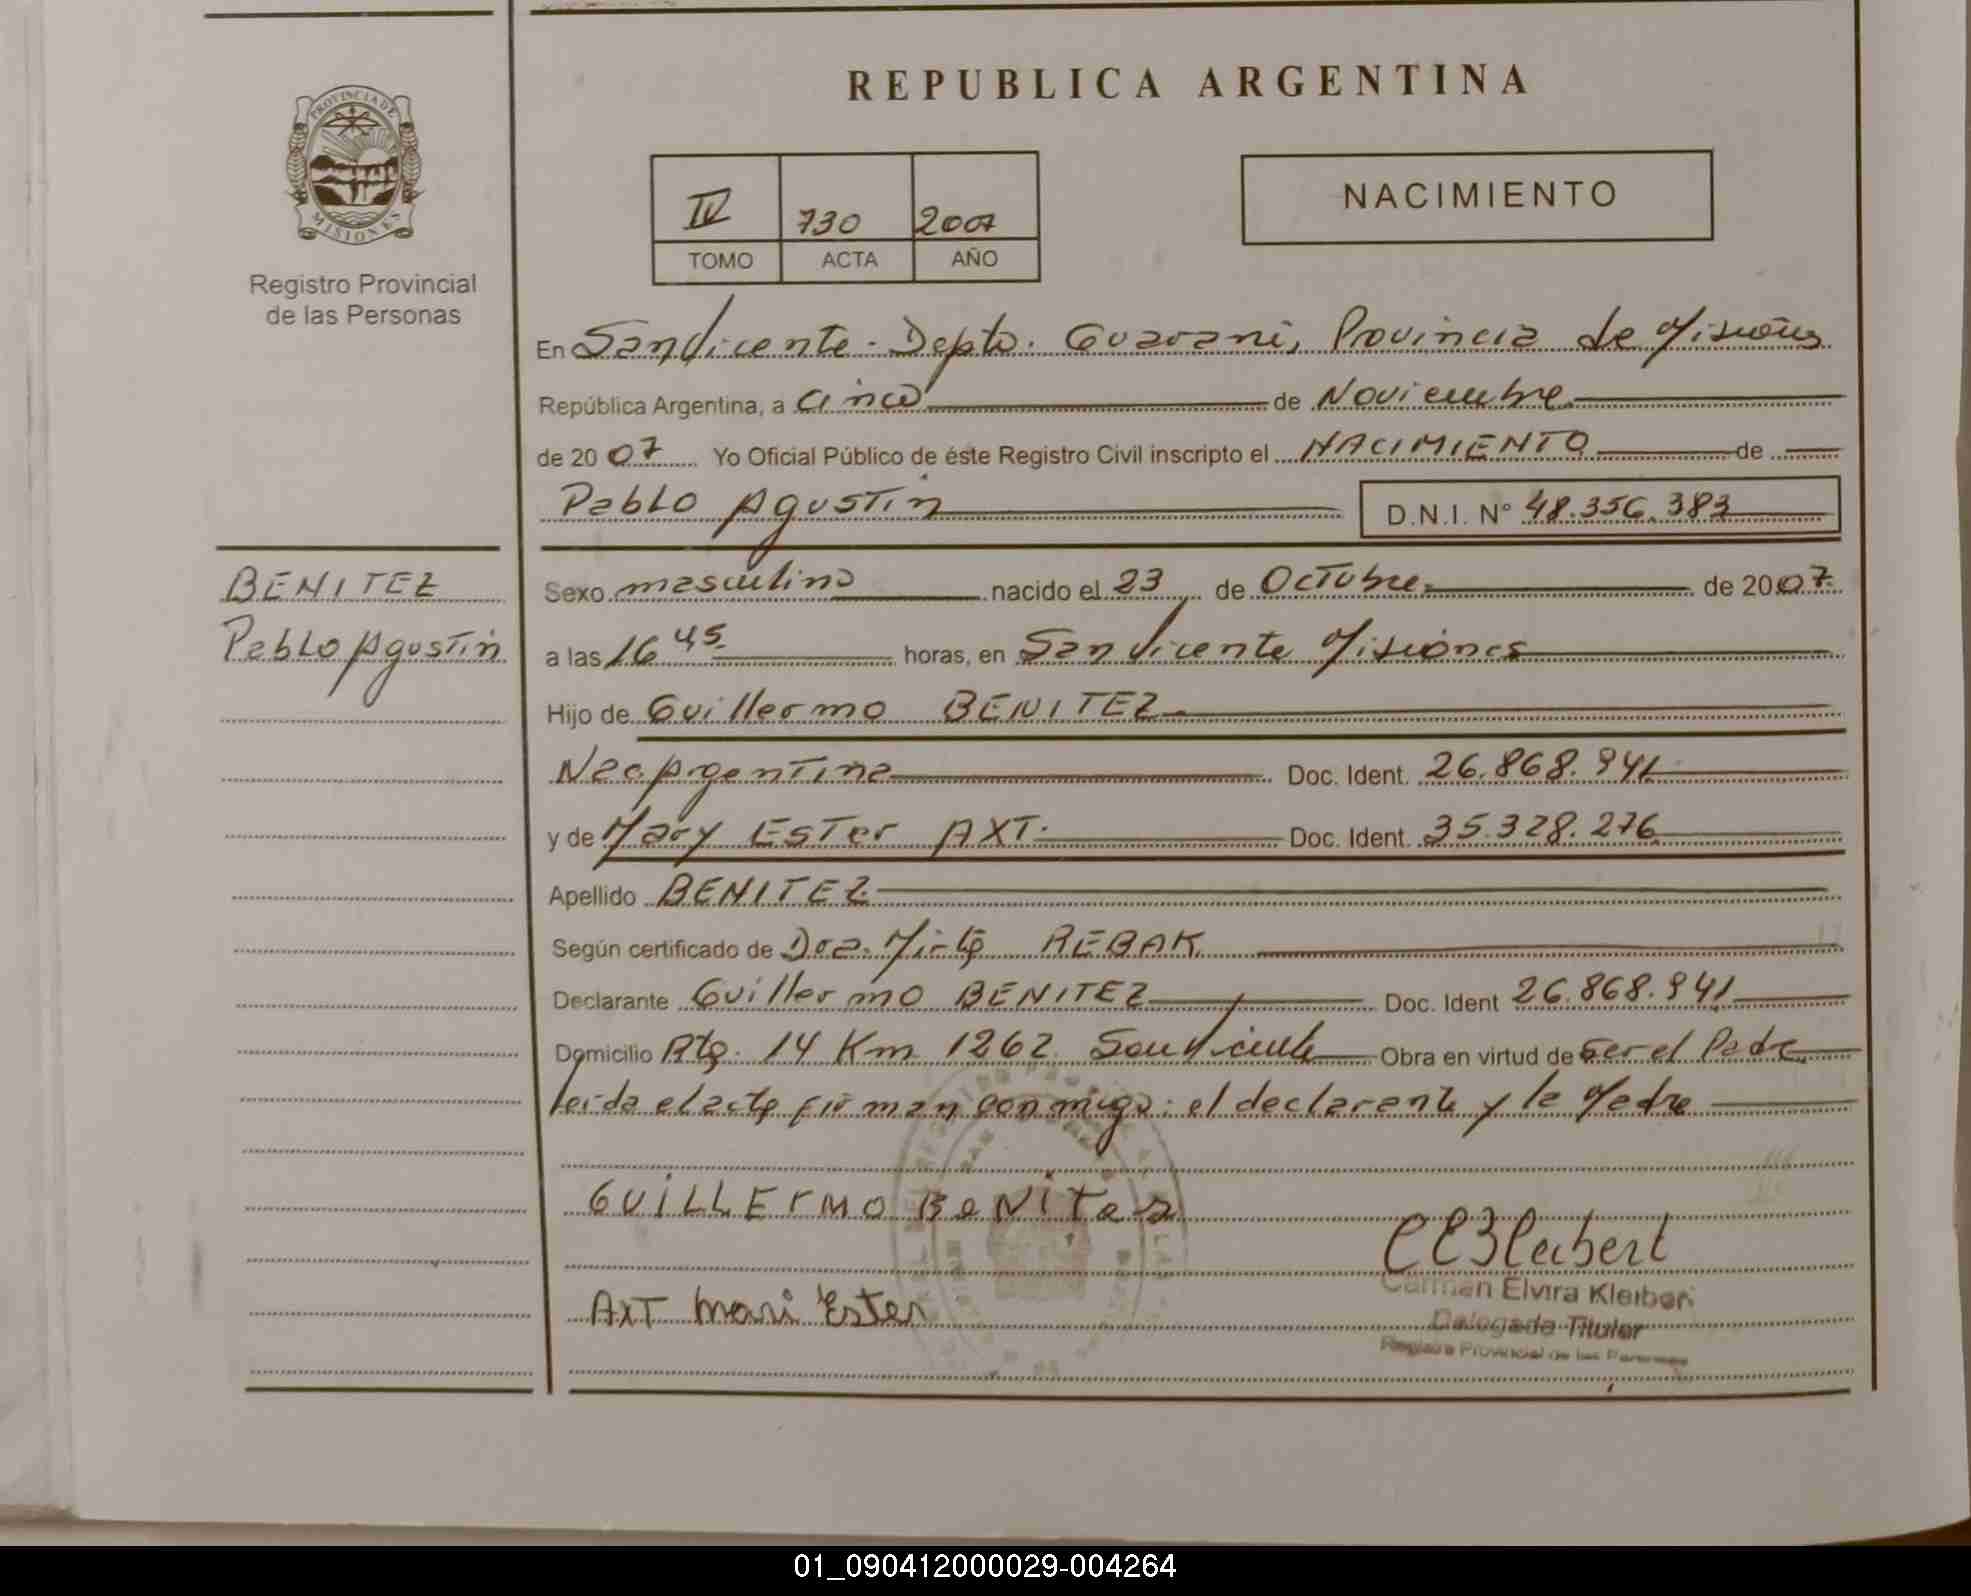 REPUBLICA ARGENTINA
PROVINCIA DE MISIONES
Registro Provincial
de las Personas
IV 730 2007
TOMO ACTA AÑO
NACIMIENTO
En San Vicente - Depto. Guarani, Provincia de Misiones
República Argentina, a cinco de Noviembre
de 2007 Yo Oficial Público de éste Registro Civil inscripto el NACIMIENTO de
Pablo Agustin D.N.I. N° 48.356.383
BENITEZ
Pablo Agustin
Sexo masculino nacido el 23 de Octubre de 2007
a las 16 45 horas, en San Vicente Misiones
Hijo de Guillermo BENITEZ
Nac Argentina Doc. Ident. 26.868.941
y de Mary Ester AXT. Doc. Ident. 35.328.276
Apellido BENITEZ
Según certificado de Dra. Mirta REBAK
Declarante Guillermo BENITEZ Doc. Ident 26.868.941
Domicilio Rta. 14 Km 1262 San Vicente Obra en virtud de ser el Padre
leida el acta firman conmigo: el declarante y la Madre
GUILLErMO BeNiTez
AxT Mari Ester
Carmen Elvira Kleibert
Delegada Titular
Registro Provincial de las Personas
01_090412000029-004264